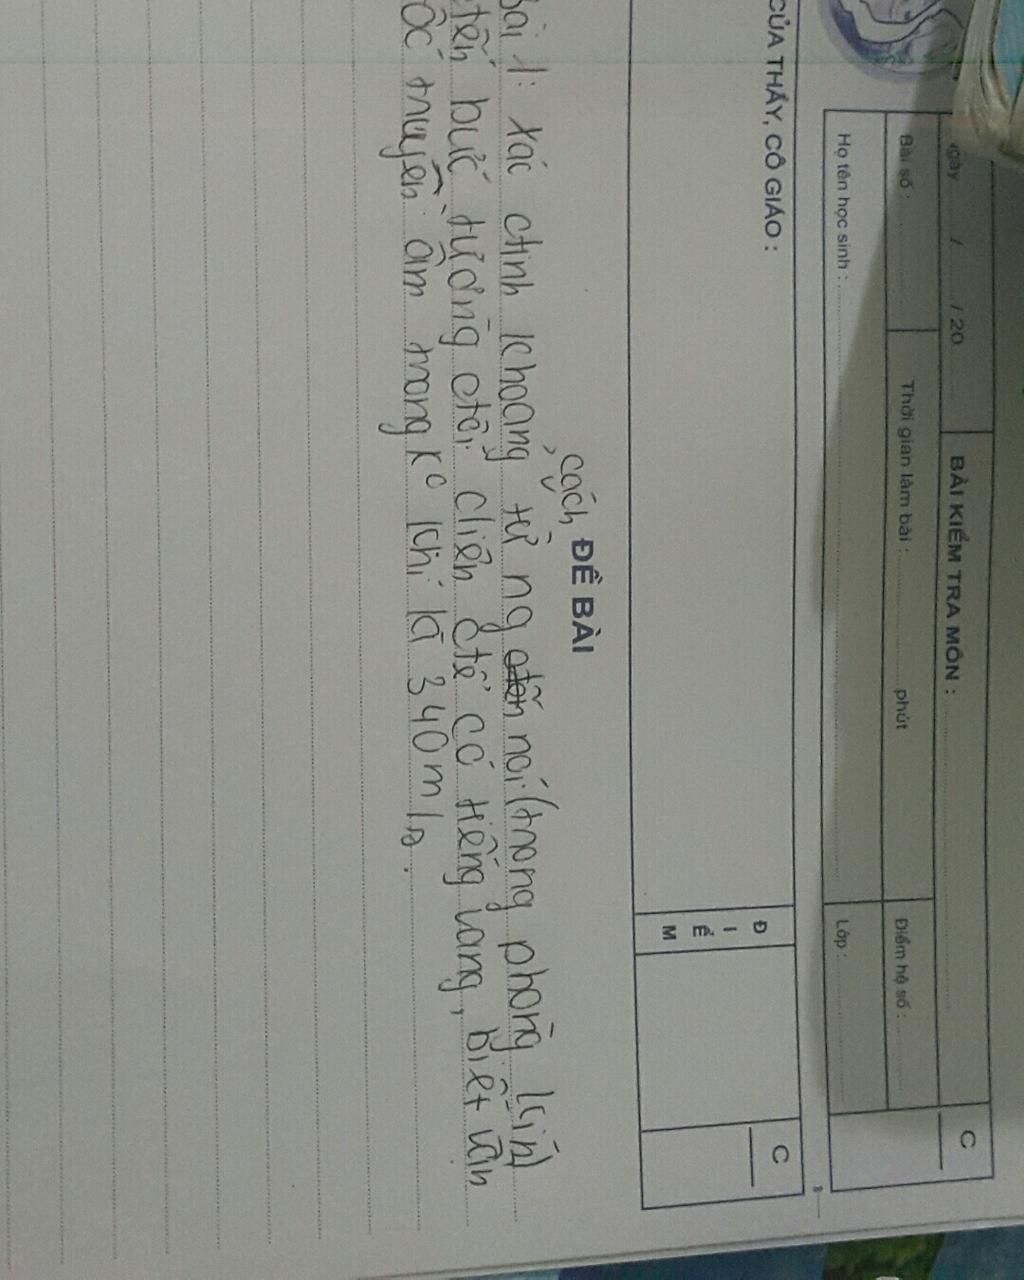 ngày / / 20
BÀI KIỂM TRA MÔN :
C
Bài số :
Thời gian làm bài : phút
Điểm hệ số :
Họ tên học sinh :
Lớp :
CỦA THẦY, CÔ GIÁO :
ĐIỂM
C
ĐỀ BÀI
cách
Bài 1: Xác định khoảng từ ng nói (trong phòng kín)
đến bức tường đối diện để có tiếng vang, biết vận
tốc truyền âm trong k° khí là 340m/s.